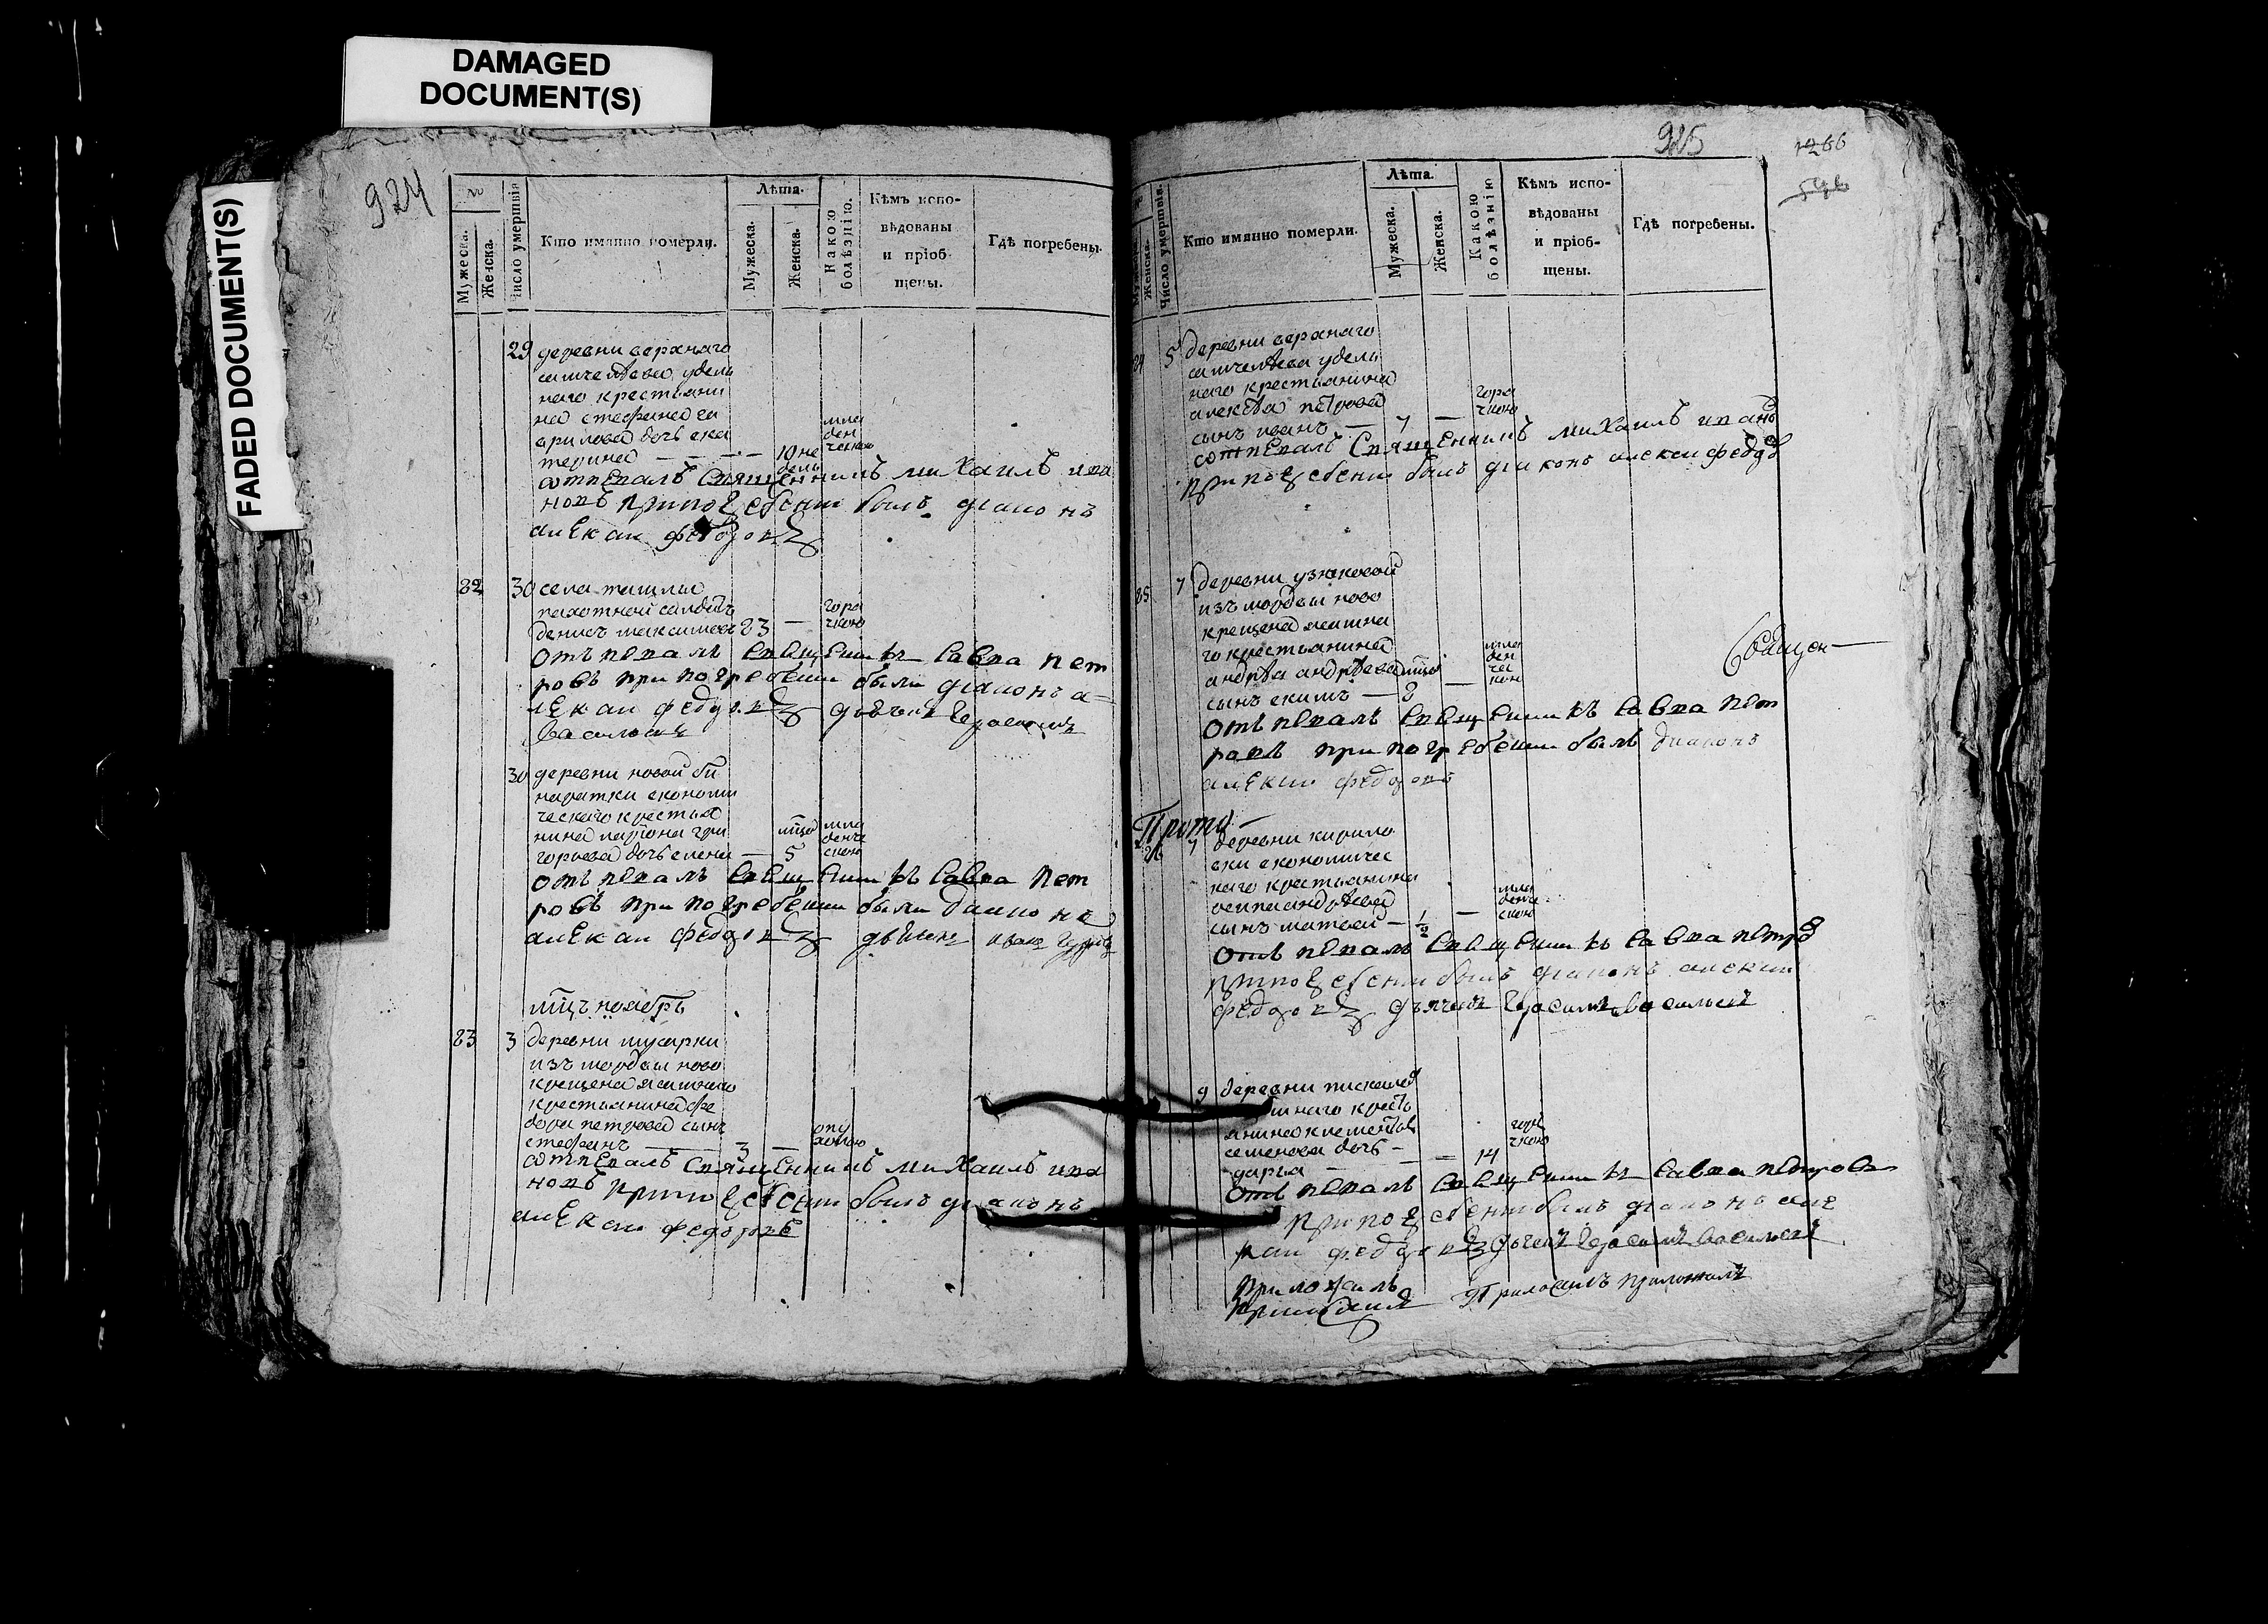 DAMAGED
DOCUMENT(S)
FADED DOCUMENT(S)
924
№
Мужеска.
Женска.
Число умершія
Кто имянно померли.
Лѣта.
Мужеска.
Женска.
Какою
болѣзнію.
Кѣмъ испо-
вѣдованы
и пріоб-
щены.
Гдѣ погребены.
29 деревни верхнаго
удель
наго крестьяни
на стефана га
врилова дочь ека
терина — 10 не
дель
мла
ден
ческою
отпевалъ священникъ михаилъ ива
новъ при погребении былъ диаконъ
алексеи федоровъ
22 30 села ташлы
пахотной салдатъ
денисъ максимовъ 23 —
горя
чкою
отъпевалъ священикъ савва пет
ровъ при погребении были диаконъ а=
лексеи федоровъ дьячекъ герасимъ
васильевъ
30 деревни новой би
наратки економи
ческаго крестья
нина лариона гри
горьева дочь елена — мца 5
мла
денче
скою
отъпевалъ священикъ савва пет
ровъ при погребении были диаконъ
алексеи федоровъ дьячекъ иванъ
мцъ ноябрь
23 3 деревни мусорки
изъ мордвы ново
крещена ясашнаго
крестьянина фе
дора петрова сынъ
стефанъ — 3 —
опу
холью
отпевалъ священникъ михаилъ ива
новъ при погребении былъ диаконъ
алексеи федоровъ
925
1266
Мужеска.
Женска.
Число умершвія.
Кто имянно померли.
Лѣта.
Мужеска.
Женска.
Какою
болѣзнію
Кѣмъ испо-
вѣдованы
и пріоб-
щены.
Гдѣ погребены.
24 5 деревни верхнаго
удель
наго крестьянина
алексѣя петрова
сынъ иванъ — 7 —
горя
чкою
отпевалъ священникъ михаилъ иванъ
при погребении былъ диаконъ алексеи федо
25 7 деревни узюковой
изъ мордвы ново
крещена ясашна
го крестьянина
андрѣя андрѣева мца
сынъ еким — 2 —
мла
ден
че
скою
отъпевалъ священикъ савва пет
ровъ при погребении былъ диаконъ
алексеи федоровъ
Священ—
Прото—
26 7 деревни кирило
вки економичес
каго крестьянина
сынъ матвей — 1/2 —
мла
денче
скою
отъпевалъ священикъ савва петро
при погребении былъ диаконъ алексеи
федоровъ дьячекъ герасимъ васильевъ
9 деревни пискалов
ашнаго кресть
янина климентия
семенова дочь —
дарья — — 14
горя
чкою
отъпевалъ священикъ савва петровъ
при погребении былъ диаконъ але
ксеи федоровъ дьячекъ герасимъ васильевъ
приложилъ